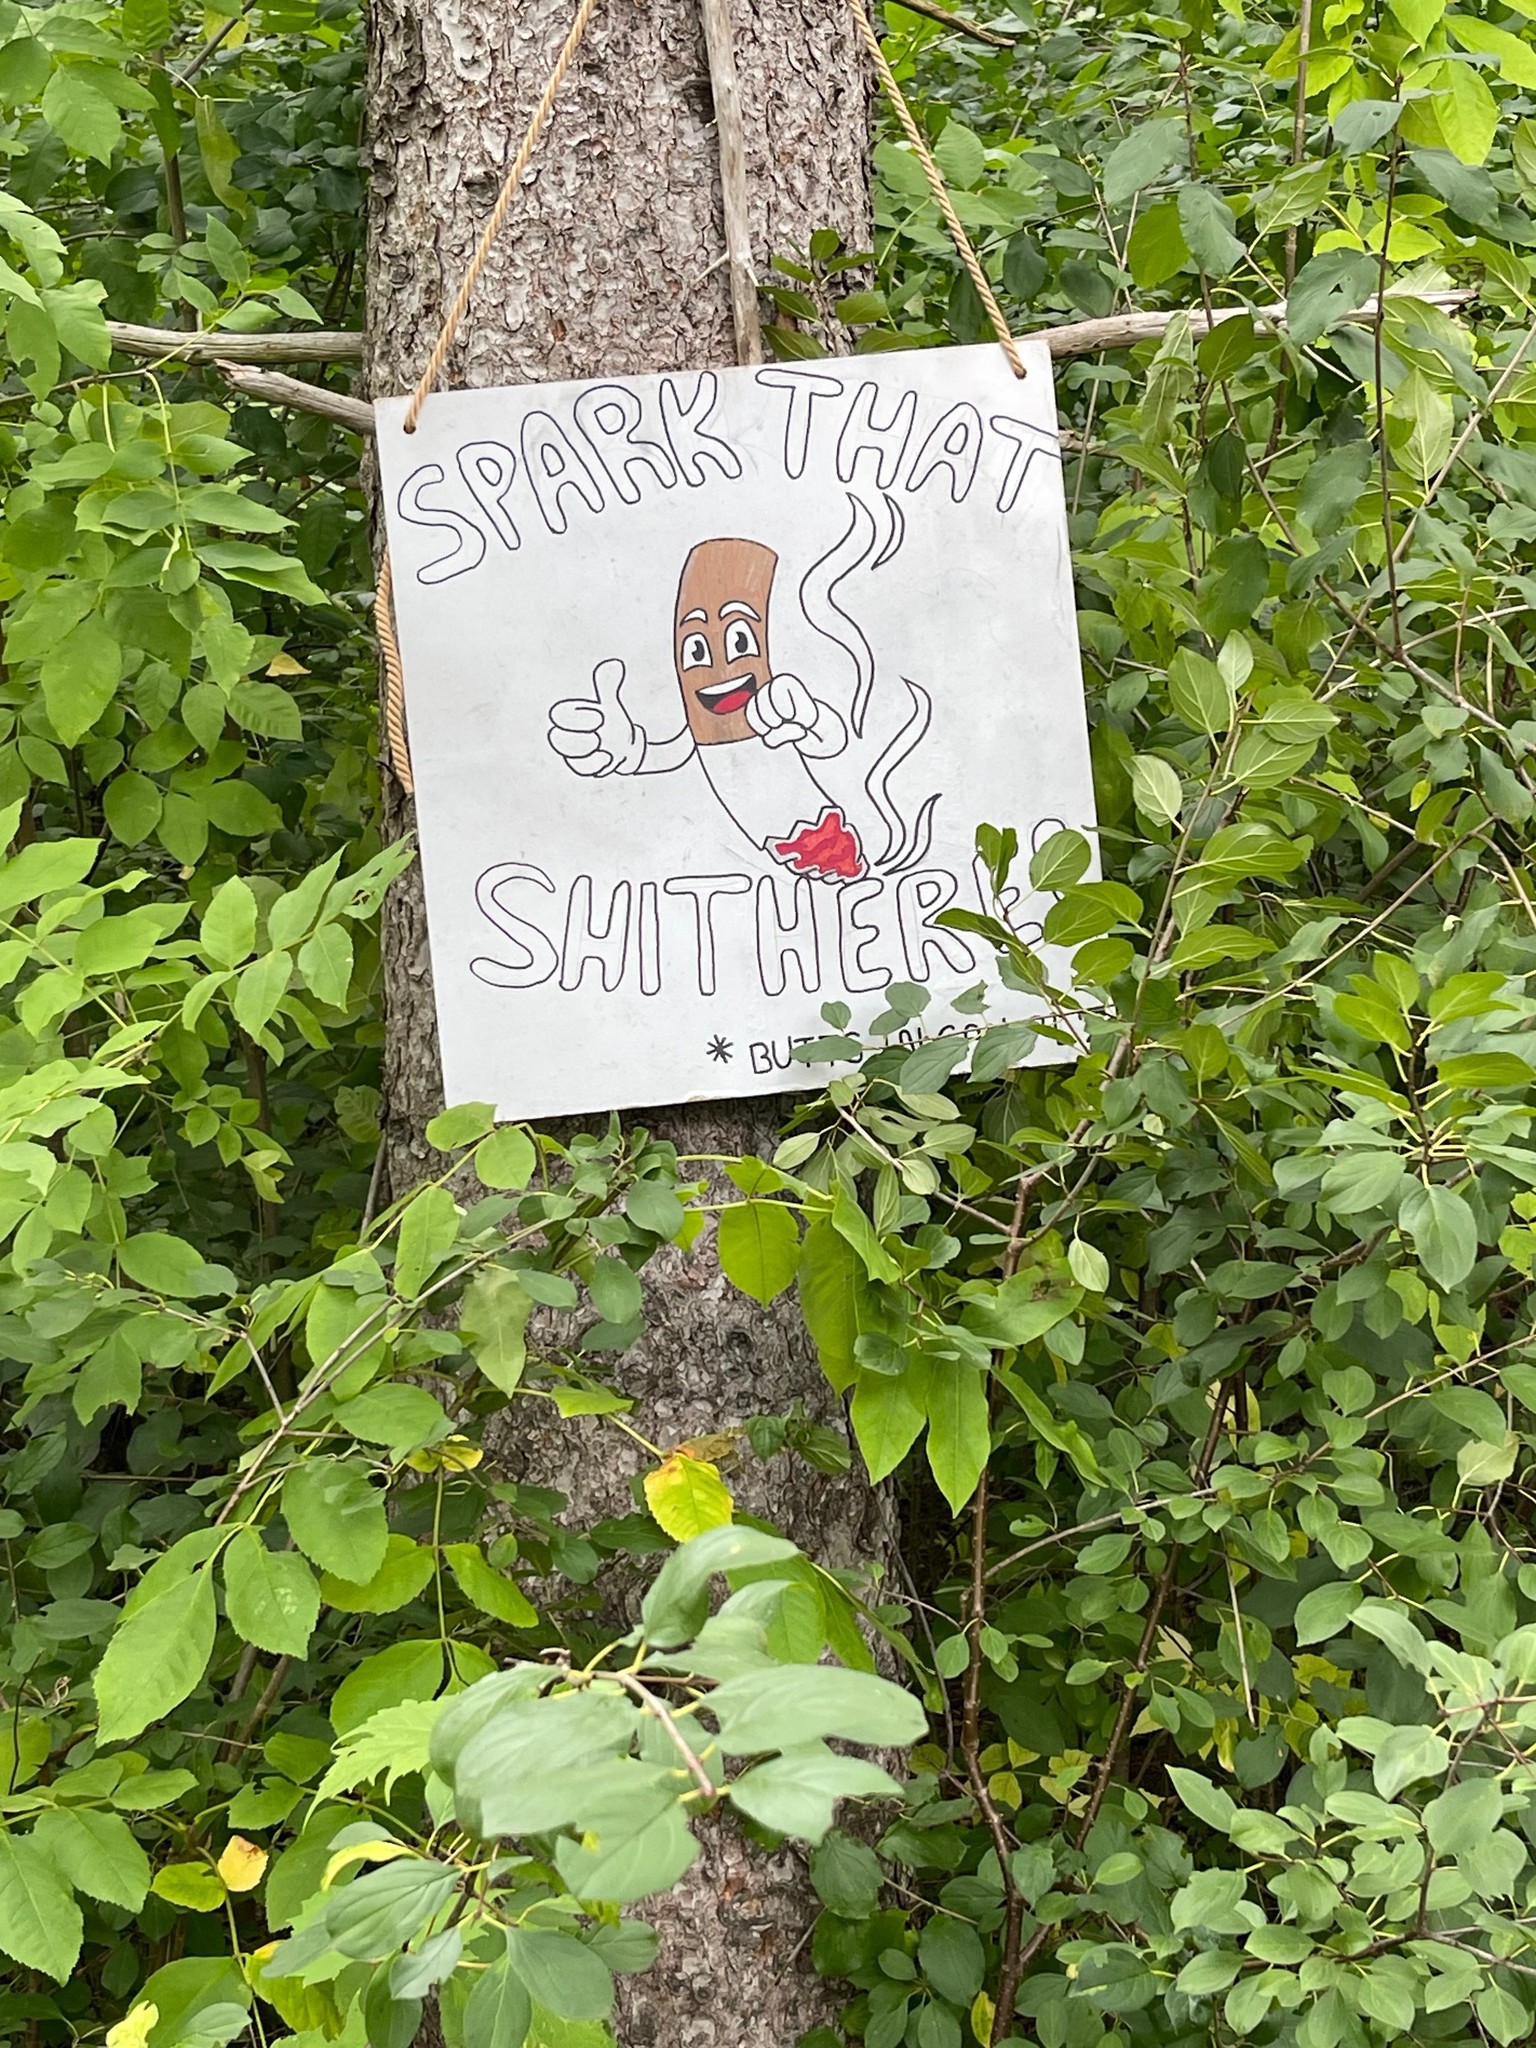 SPARK THAT
SHIT HERE
* BUTTS